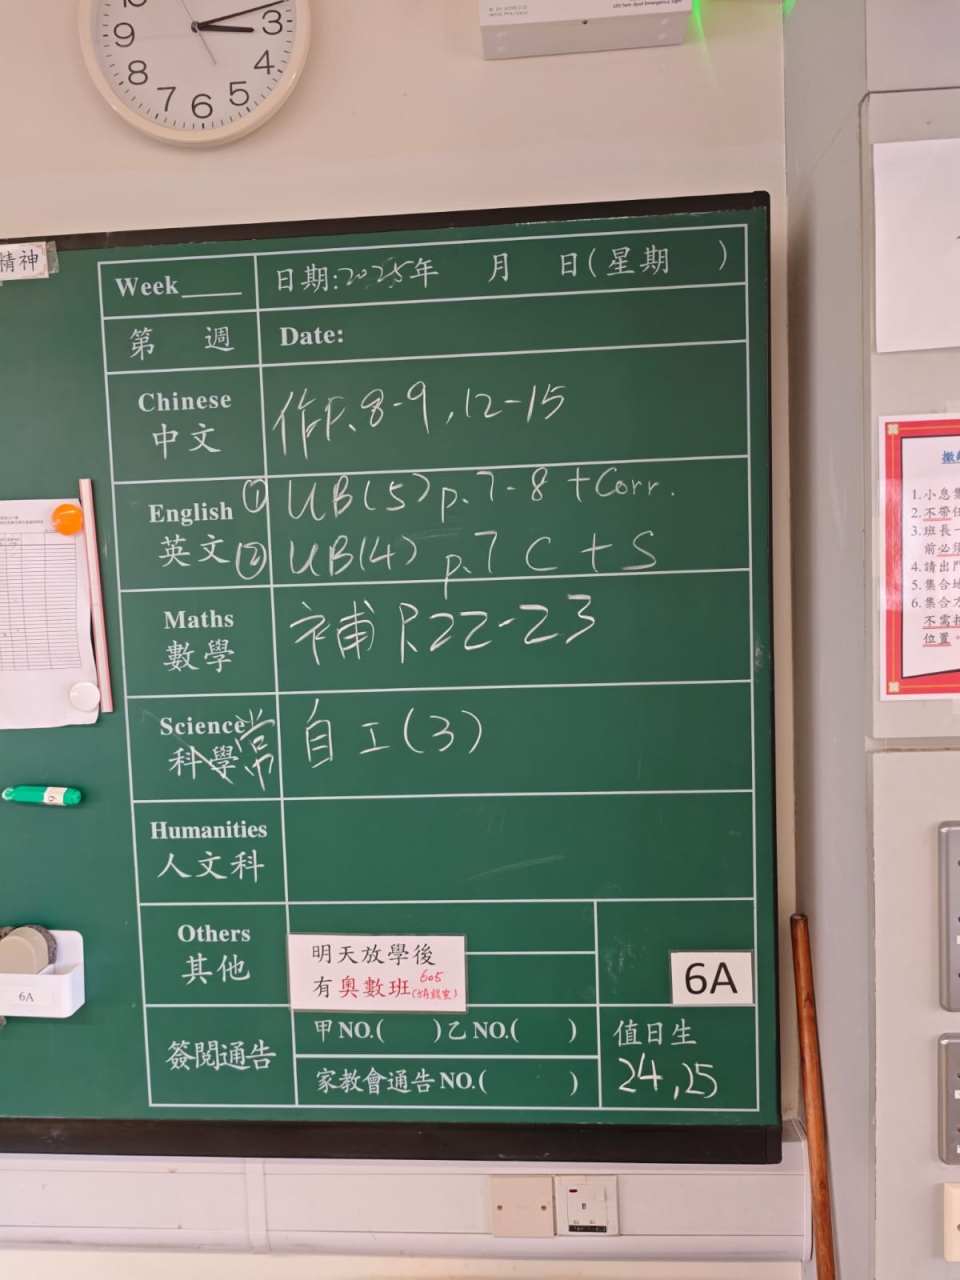 9
3
8
4
7
6
5
LED Twin-Spot Emergency Light
精神
Week____ 日期:2025年 月 日(星期 )
第 週 Date:
Chinese
中文
作P.8-9,12-15
English
英文
① UB(5) p.7-8 +Corr.
② UB(4) p.7 C + S
Maths
數學
補 P.22-23
Science
科學 常
自工(3)
Humanities
人文科
Others
其他
明天放學後
有奧數班 605
6A
6A
簽閱通告
甲NO.( )乙NO.( )
家教會通告NO.( )
值日生
24,25
1.小息
2.不帶
3.班長
前必須
4.請出
5.集合
6.集合
不需
位置。